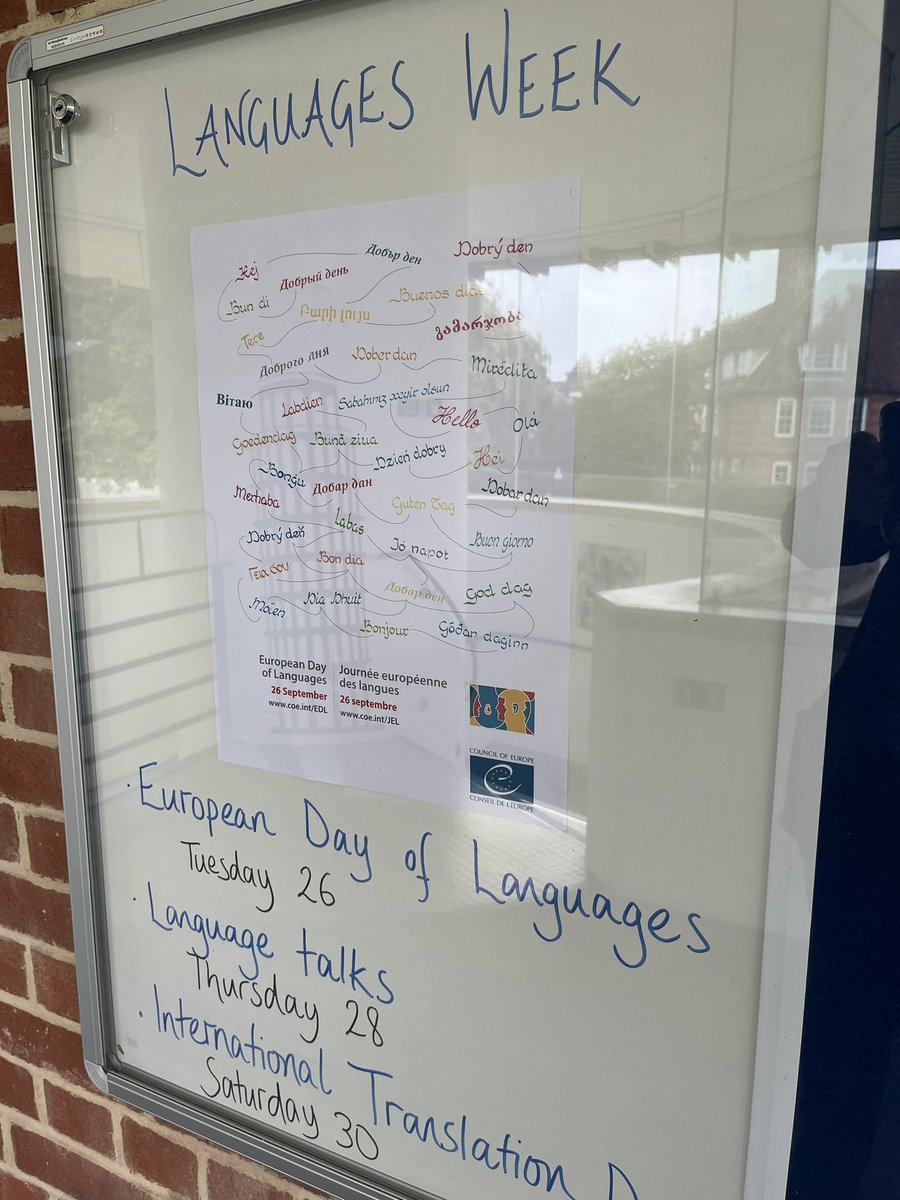 LANGUAGES WEEK
Hej
Добър ден
Dobrý den
Bun di
Добрый день
Buenos días
Բարի լույս
Tere
გამარჯობა
Доброго дня
Dober dan
Mirëdita
Вітаю
Labdien
Sabahınız xeyir olsun
Hello
Olá
Goedendag
Bună ziua
Dzień dobry
Hei
Bonġu
Merhaba
Добар дан
Guten Tag
Dobar dan
Labas
Dobrý deň
Jó napot
Buon giorno
Γεια σου
Bon dia
Moïen
Dia Dhuit
Добар ден
God dag
Bonjour
Góðan daginn
European Day
of Languages
26 September
www.coe.int/EDL
Journée européenne
des langues
26 septembre
www.coe.int/JEL
COUNCIL OF EUROPE
CONSEIL DE L'EUROPE
· European Day of Languages
Tuesday 26
· Language talks
Thursday 28
· International Translation D
Saturday 30